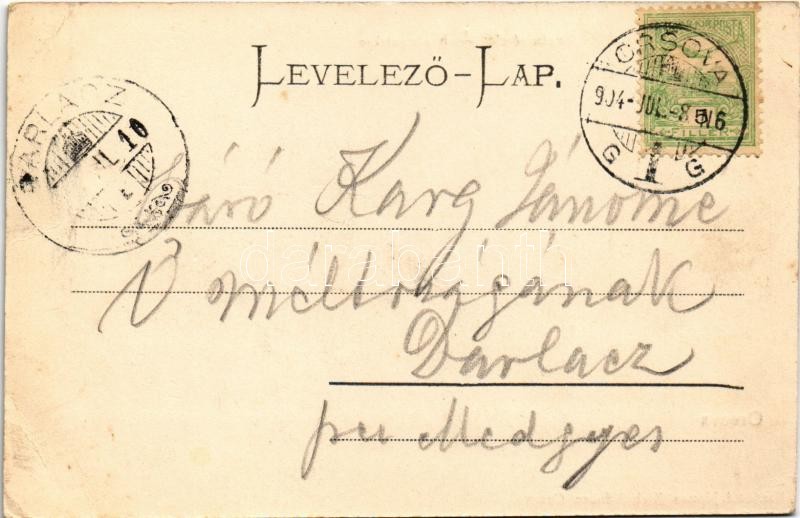 LEVELEZŐ-LAP.
MAGYAR KIR. POSTA
ORSOVA
904-JUL.-8. N6
5
FILLER
G I G
DARLACZ
JUL. 10
Báró Karg Jánosné
Ő méltóságának
Darlacz
per Medgyes
darabanth